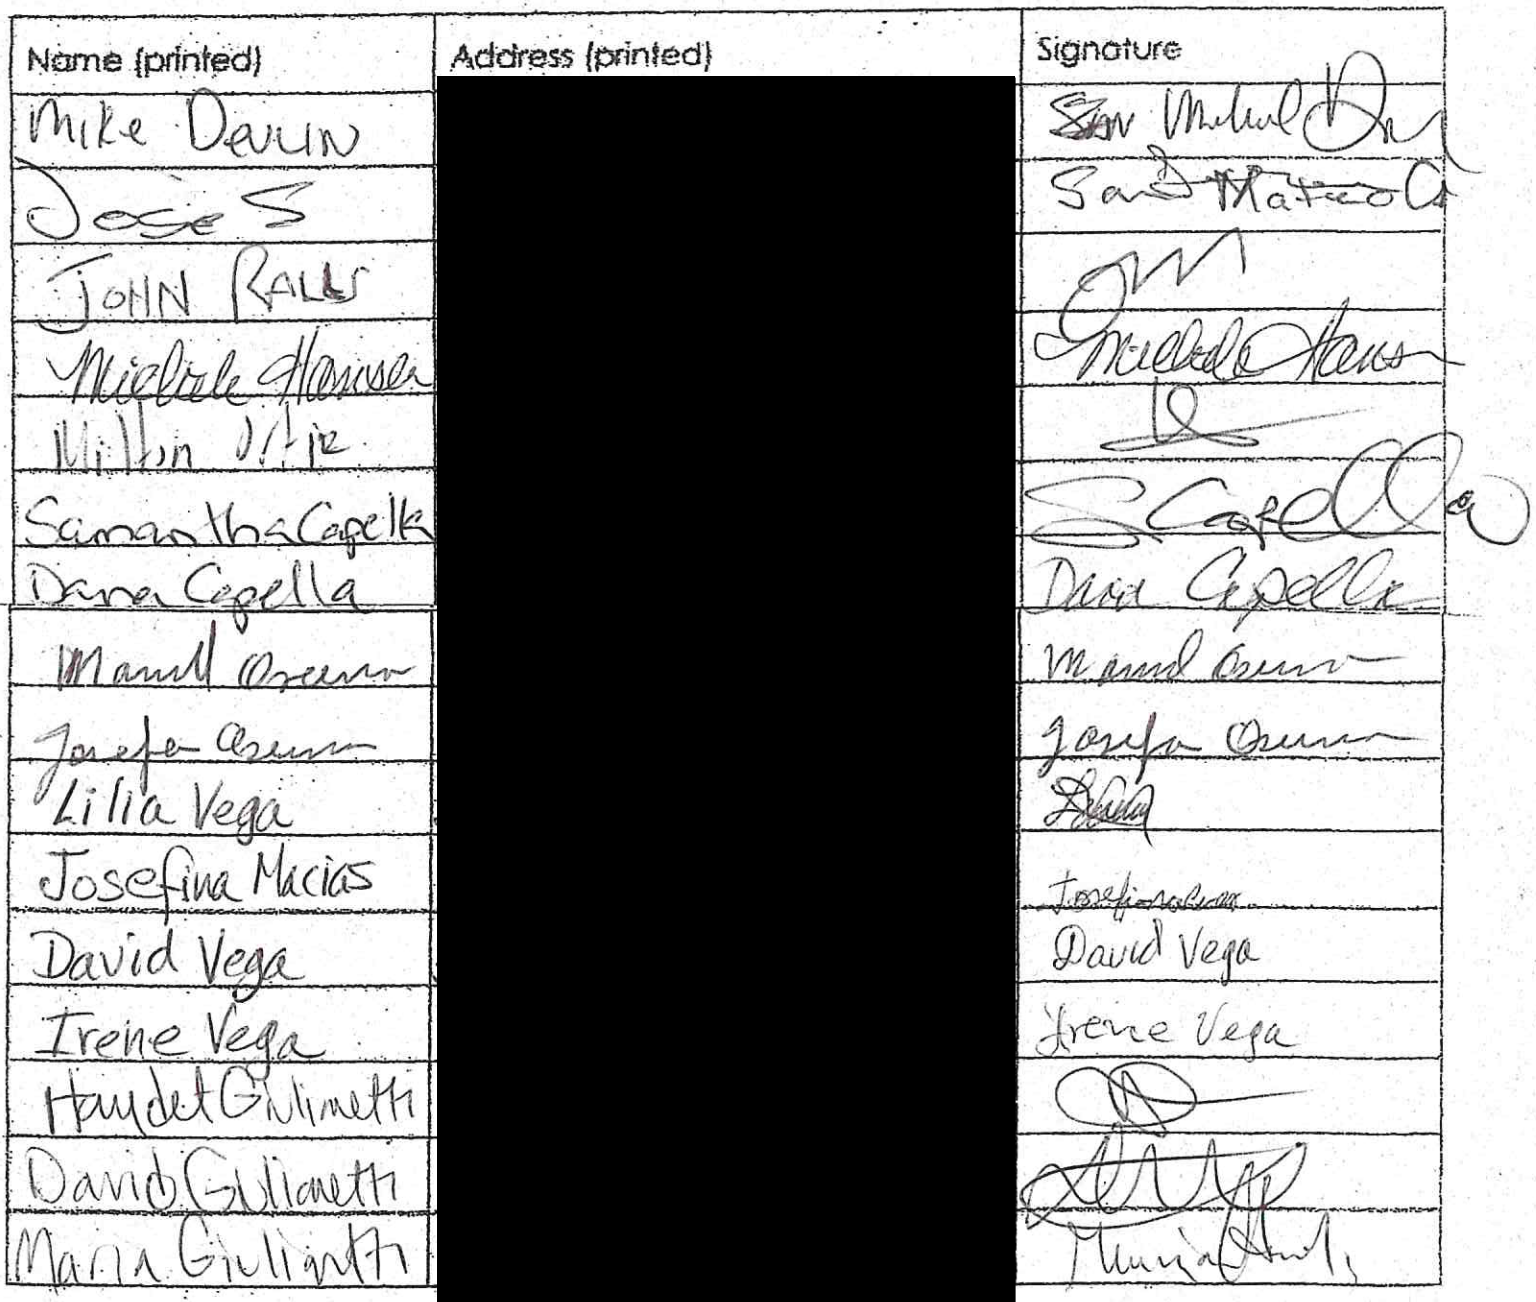 Name (printed) Address (printed) Signature
Mike Devlin Michael
José S San Mateo
JOHN RALLS
Michele Hansen Michele Hans
Milton
Samantha Capella S Capella
Dana Capella Dana Capella
Manuel Osuna Manuel Osuna
Josefa Osuna Josefa Osuna
Lilia Vega
Josefina Macias Josefina
David Vega David Vega
Irene Vega Irene Vega
Haydet Giulianetti
David Giulianetti
Maria Giulianetti